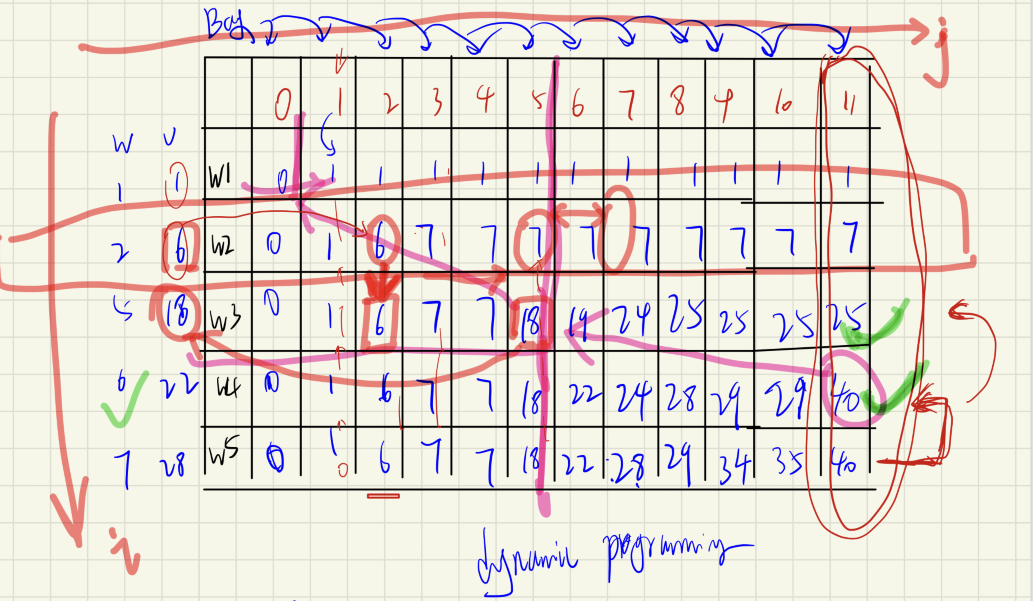 Bag
j
0 1 2 3 4 5 6 7 8 9 10 11
W V
1 1 W1 0 1 1 1 1 1 1 1 1 1 1 1
2 6 W2 0 1 6 7 7 7 7 7 7 7 7 7
5 18 W3 0 1 6 7 7 18 19 24 25 25 25 25
6 22 W4 0 1 6 7 7 18 22 24 28 29 29 40
7 28 W5 0 1 6 7 7 18 22 28 29 34 35 40
i
dynamic programming